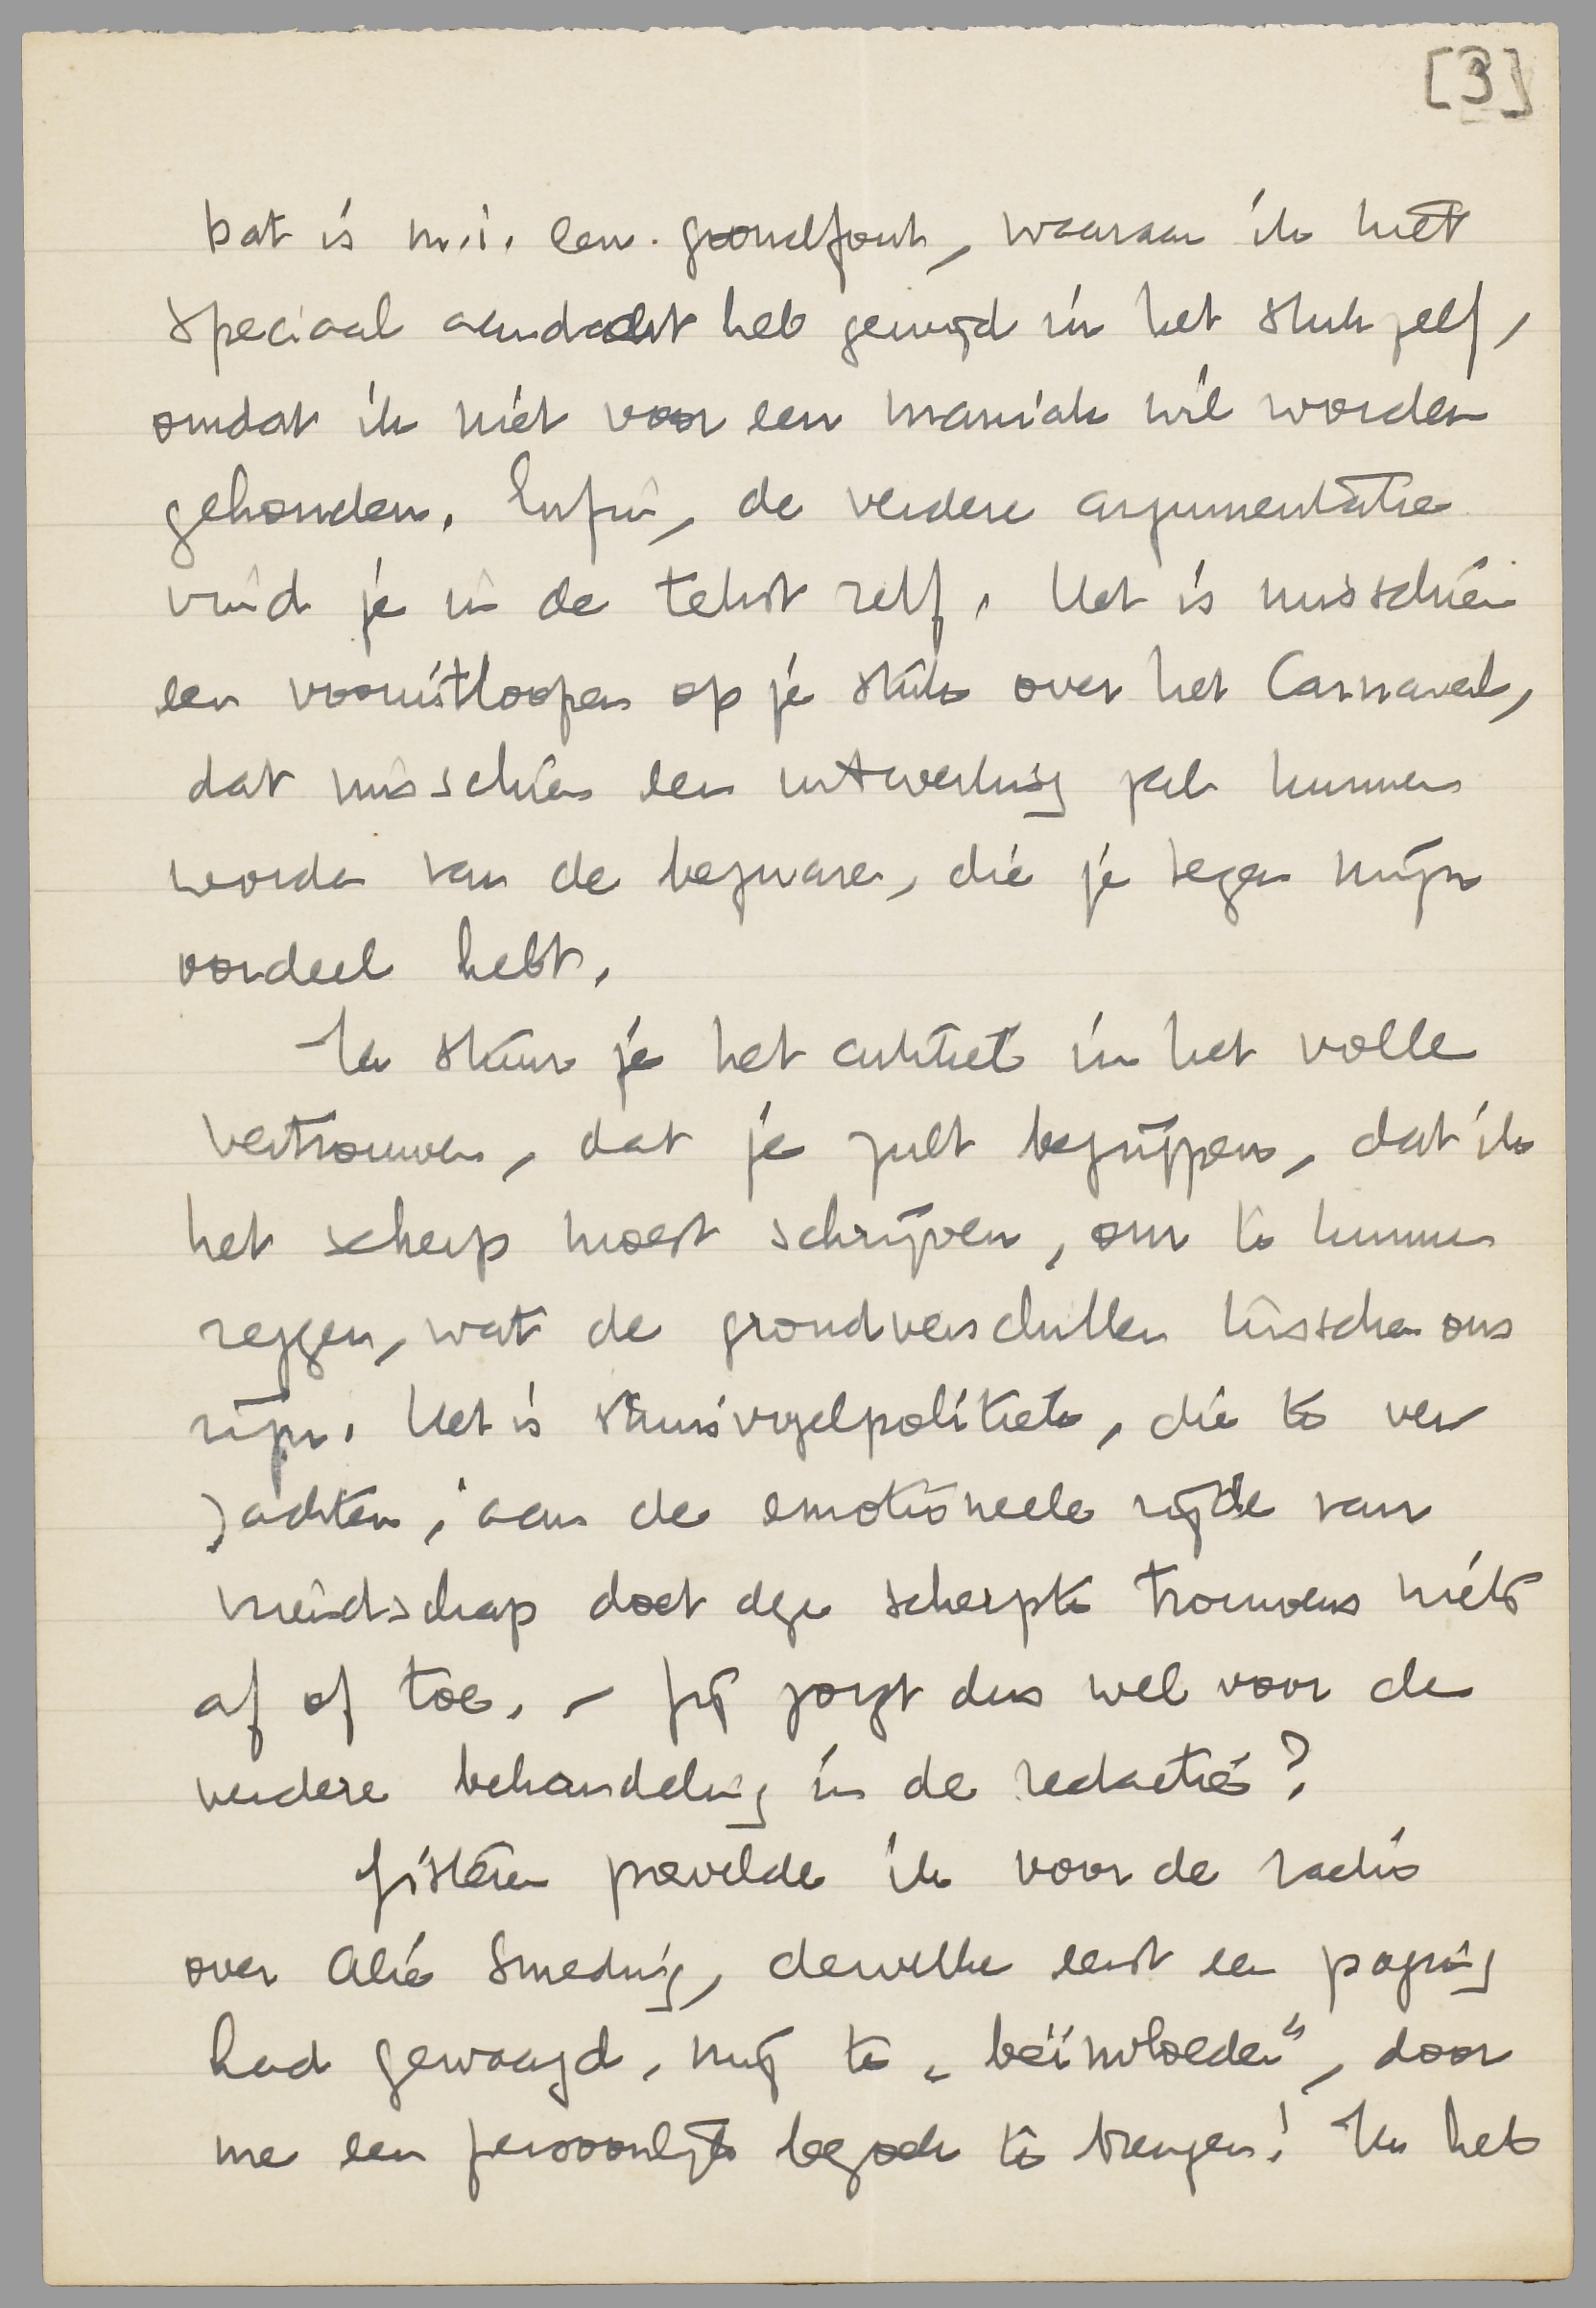 [3]
Dat is m.i. een grondfout, waaraan ik niet
speciaal aandacht heb gewijd in het stuk zelf,
omdat ik niet voor een maniak wil worden
gehouden. Enfin, de verdere argumentatie
vind je in de tekst zelf. Het is misschien
een vooruitloopen op je stuk over het Carnaval,
dat misschien een uitwerking zal kunnen
worden van de bezwaren, die je tegen mijn
oordeel hebt.
Ik stuur je het artikel in het volle
vertrouwen, dat je zult begrijpen, dat ik
het scherp moest schrijven, om te kunnen
zeggen, wat de grondverschillen tusschen ons
zijn. Het is struisvogelpolitiek, die te ver-
zachten; aan de emotioneele zijde van
vriendschap doet deze scherpte trouwens niets
af of toe. – Jij zorgt dus wel voor de
verdere behandeling in de redactie?
Gisteren prevelde ik voor de radio
over Alie Smeding, dewelke eerst een poging
had gewaagd, mij te „beïnvloeden”, door
me een persoonlijk bezoek te brengen! Ik heb